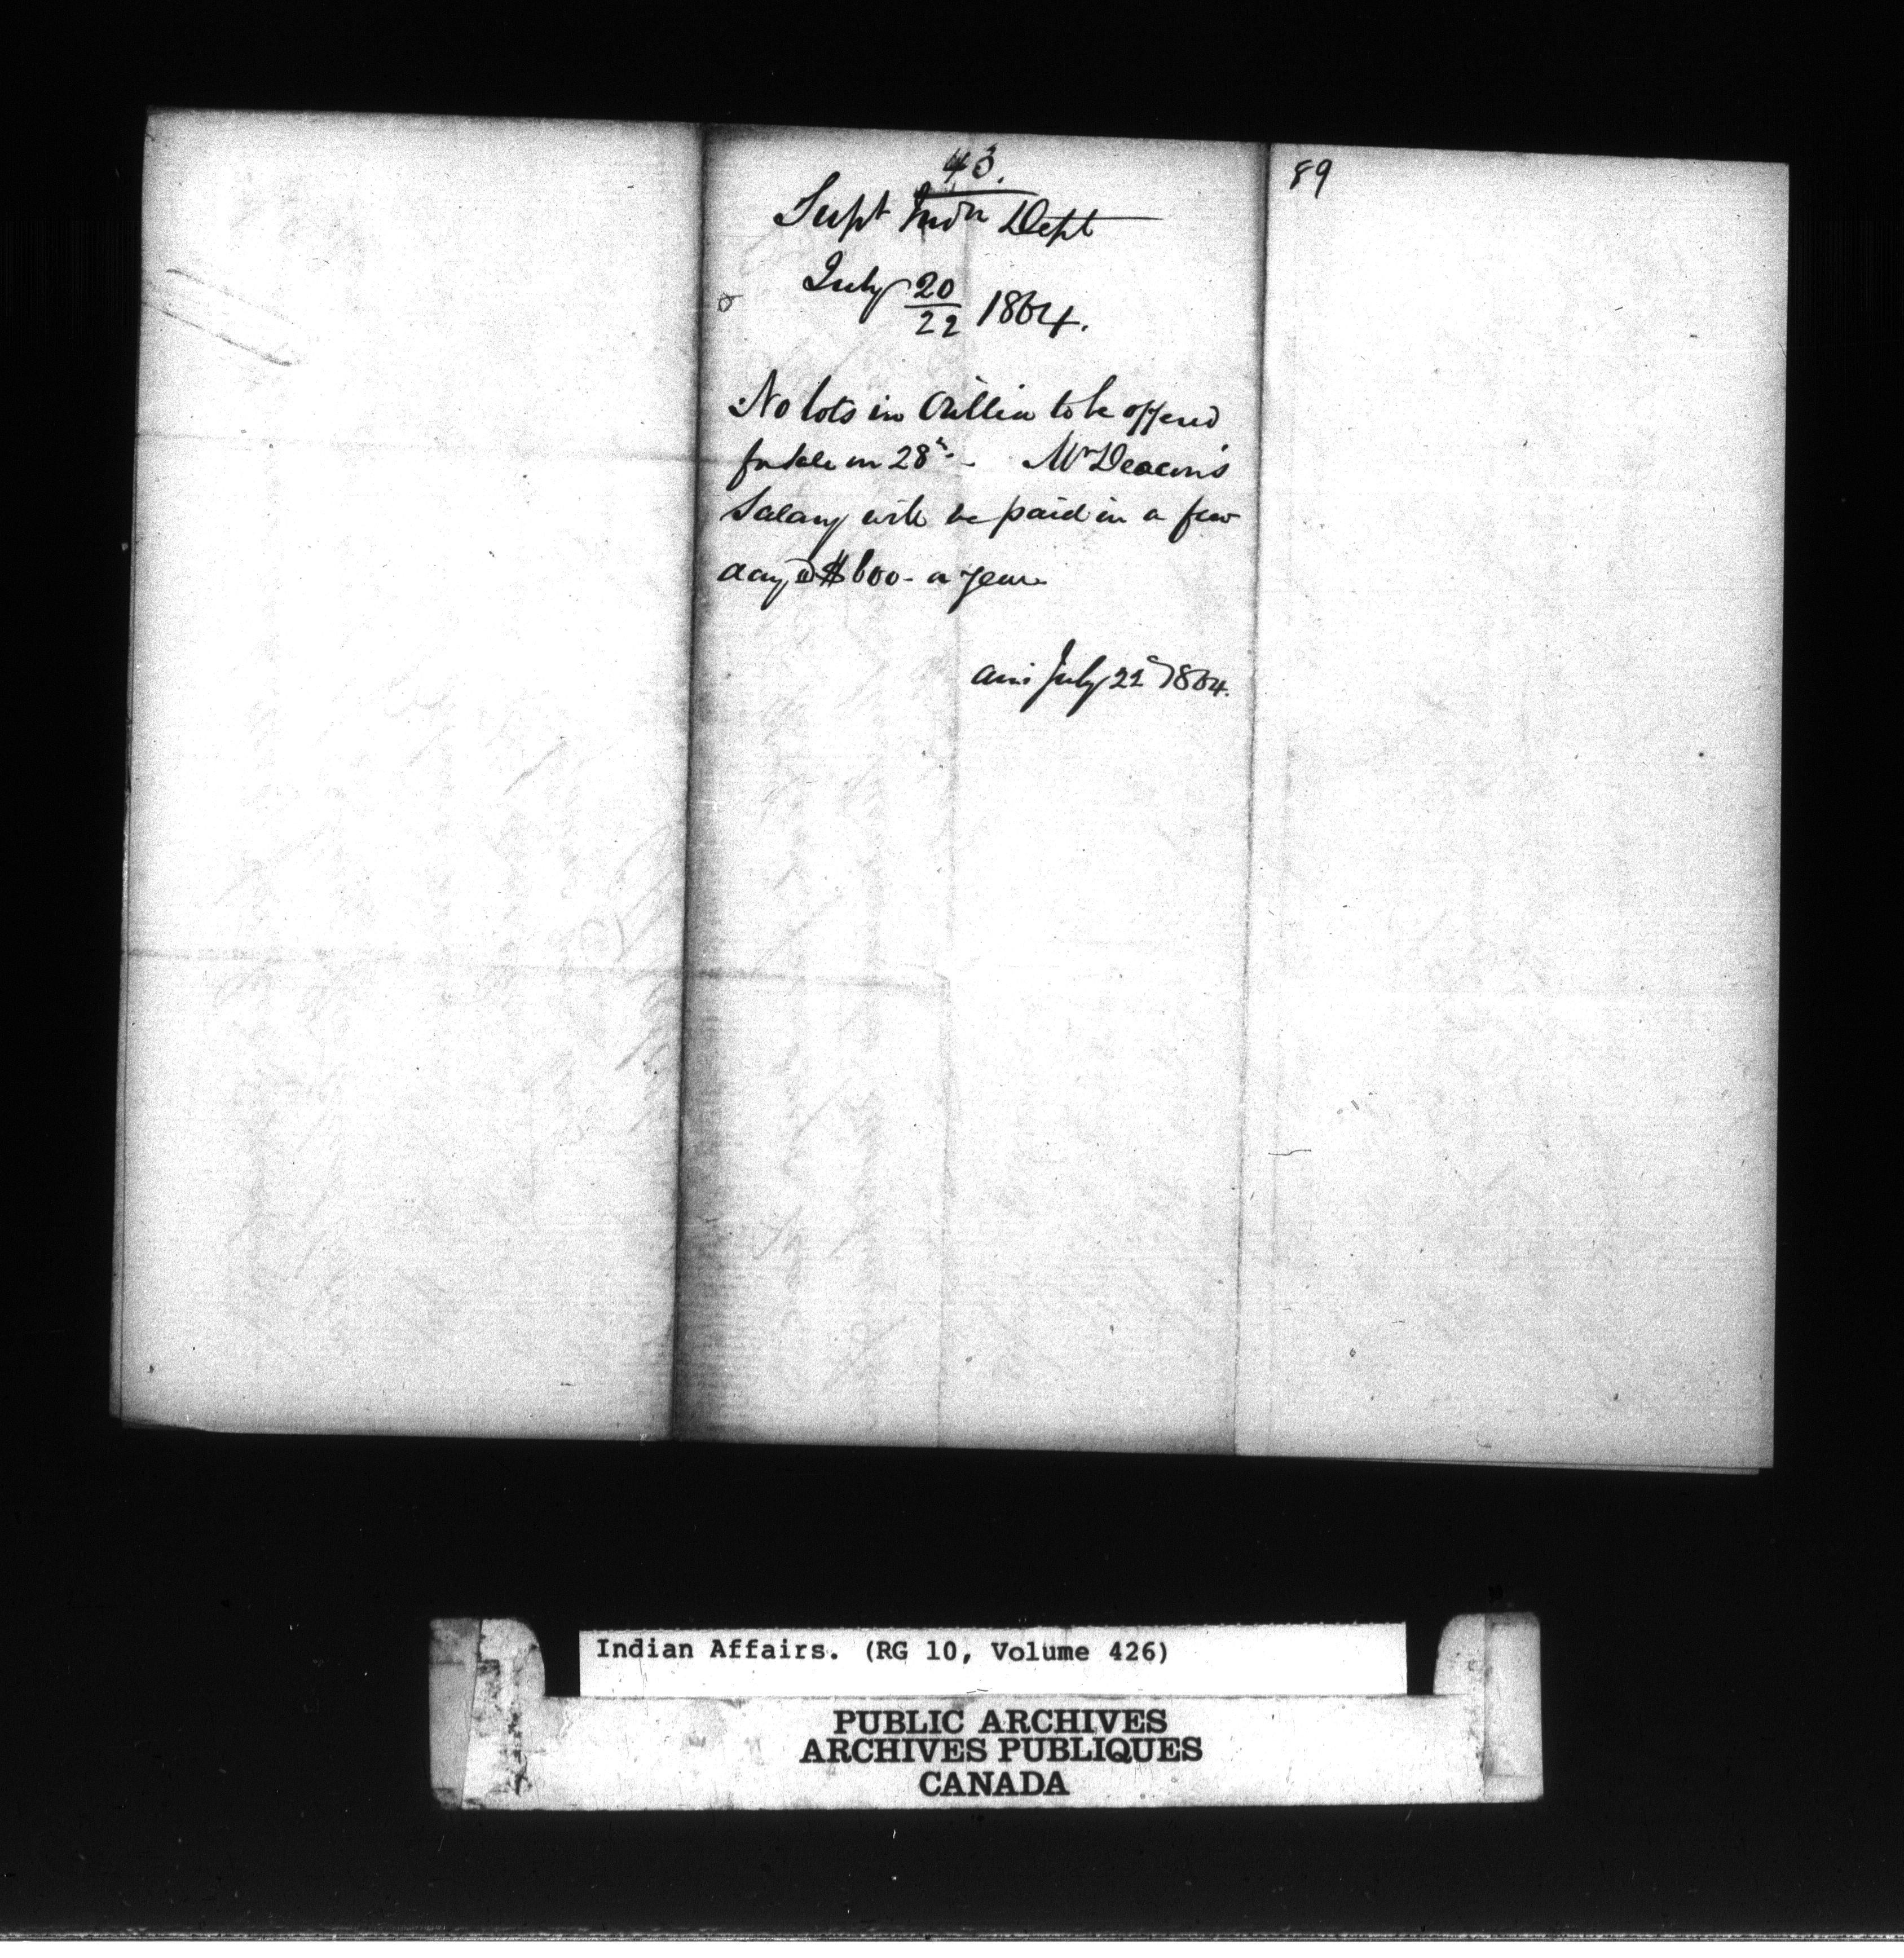 43.
Supt Indn Dept
July 20/22 1864.
No lots in Orillia to be offered
for sale on 28th. Mr Deacon's
Salary will be paid in a few
days @ $600- a year
July 22d 1864.
89
Indian Affairs. (RG 10, Volume 426)
PUBLIC ARCHIVES
ARCHIVES PUBLIQUES
CANADA